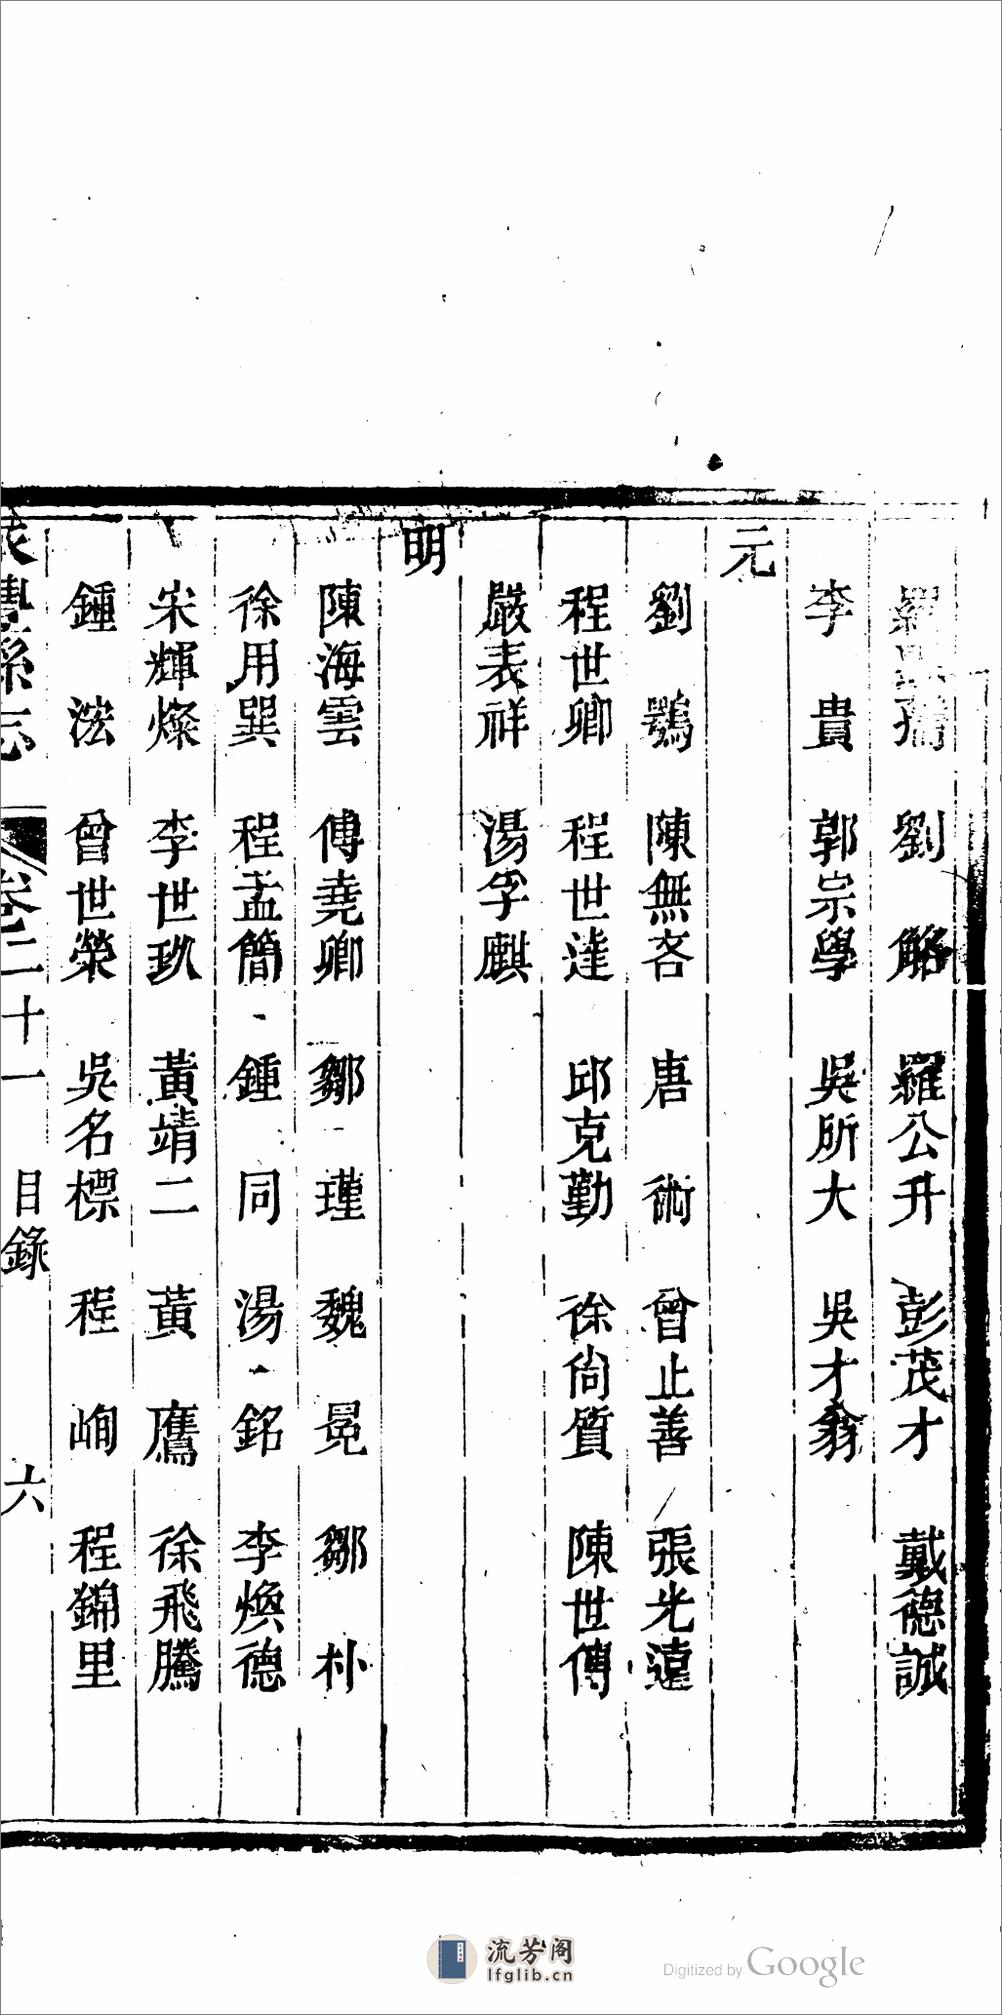 羅 劉 觧 羅公升 彭茂才 戴德誠
李 貴 郭宗學 吳所大 吳才翁
元
劉 鶚 陳無吝 唐 術 曾止善 張光遠
程世卿 程世達 邱克勤 徐尙質 陳世傳
嚴表祥 湯孚麒
明
陳海雲 傅堯卿 鄒 瑾 魏 冕 鄒 朴
徐用巽 程孟簡 鍾 同 湯 銘 李煥德
宋輝燦 李世玖 黃靖二 黃 鷹 徐飛騰
鍾 浤 曾世榮 吳名標 程 峋 程錦里
豐縣志 卷二十一 目錄 六
流芳阁
lfglib.cn
Digitized by Google